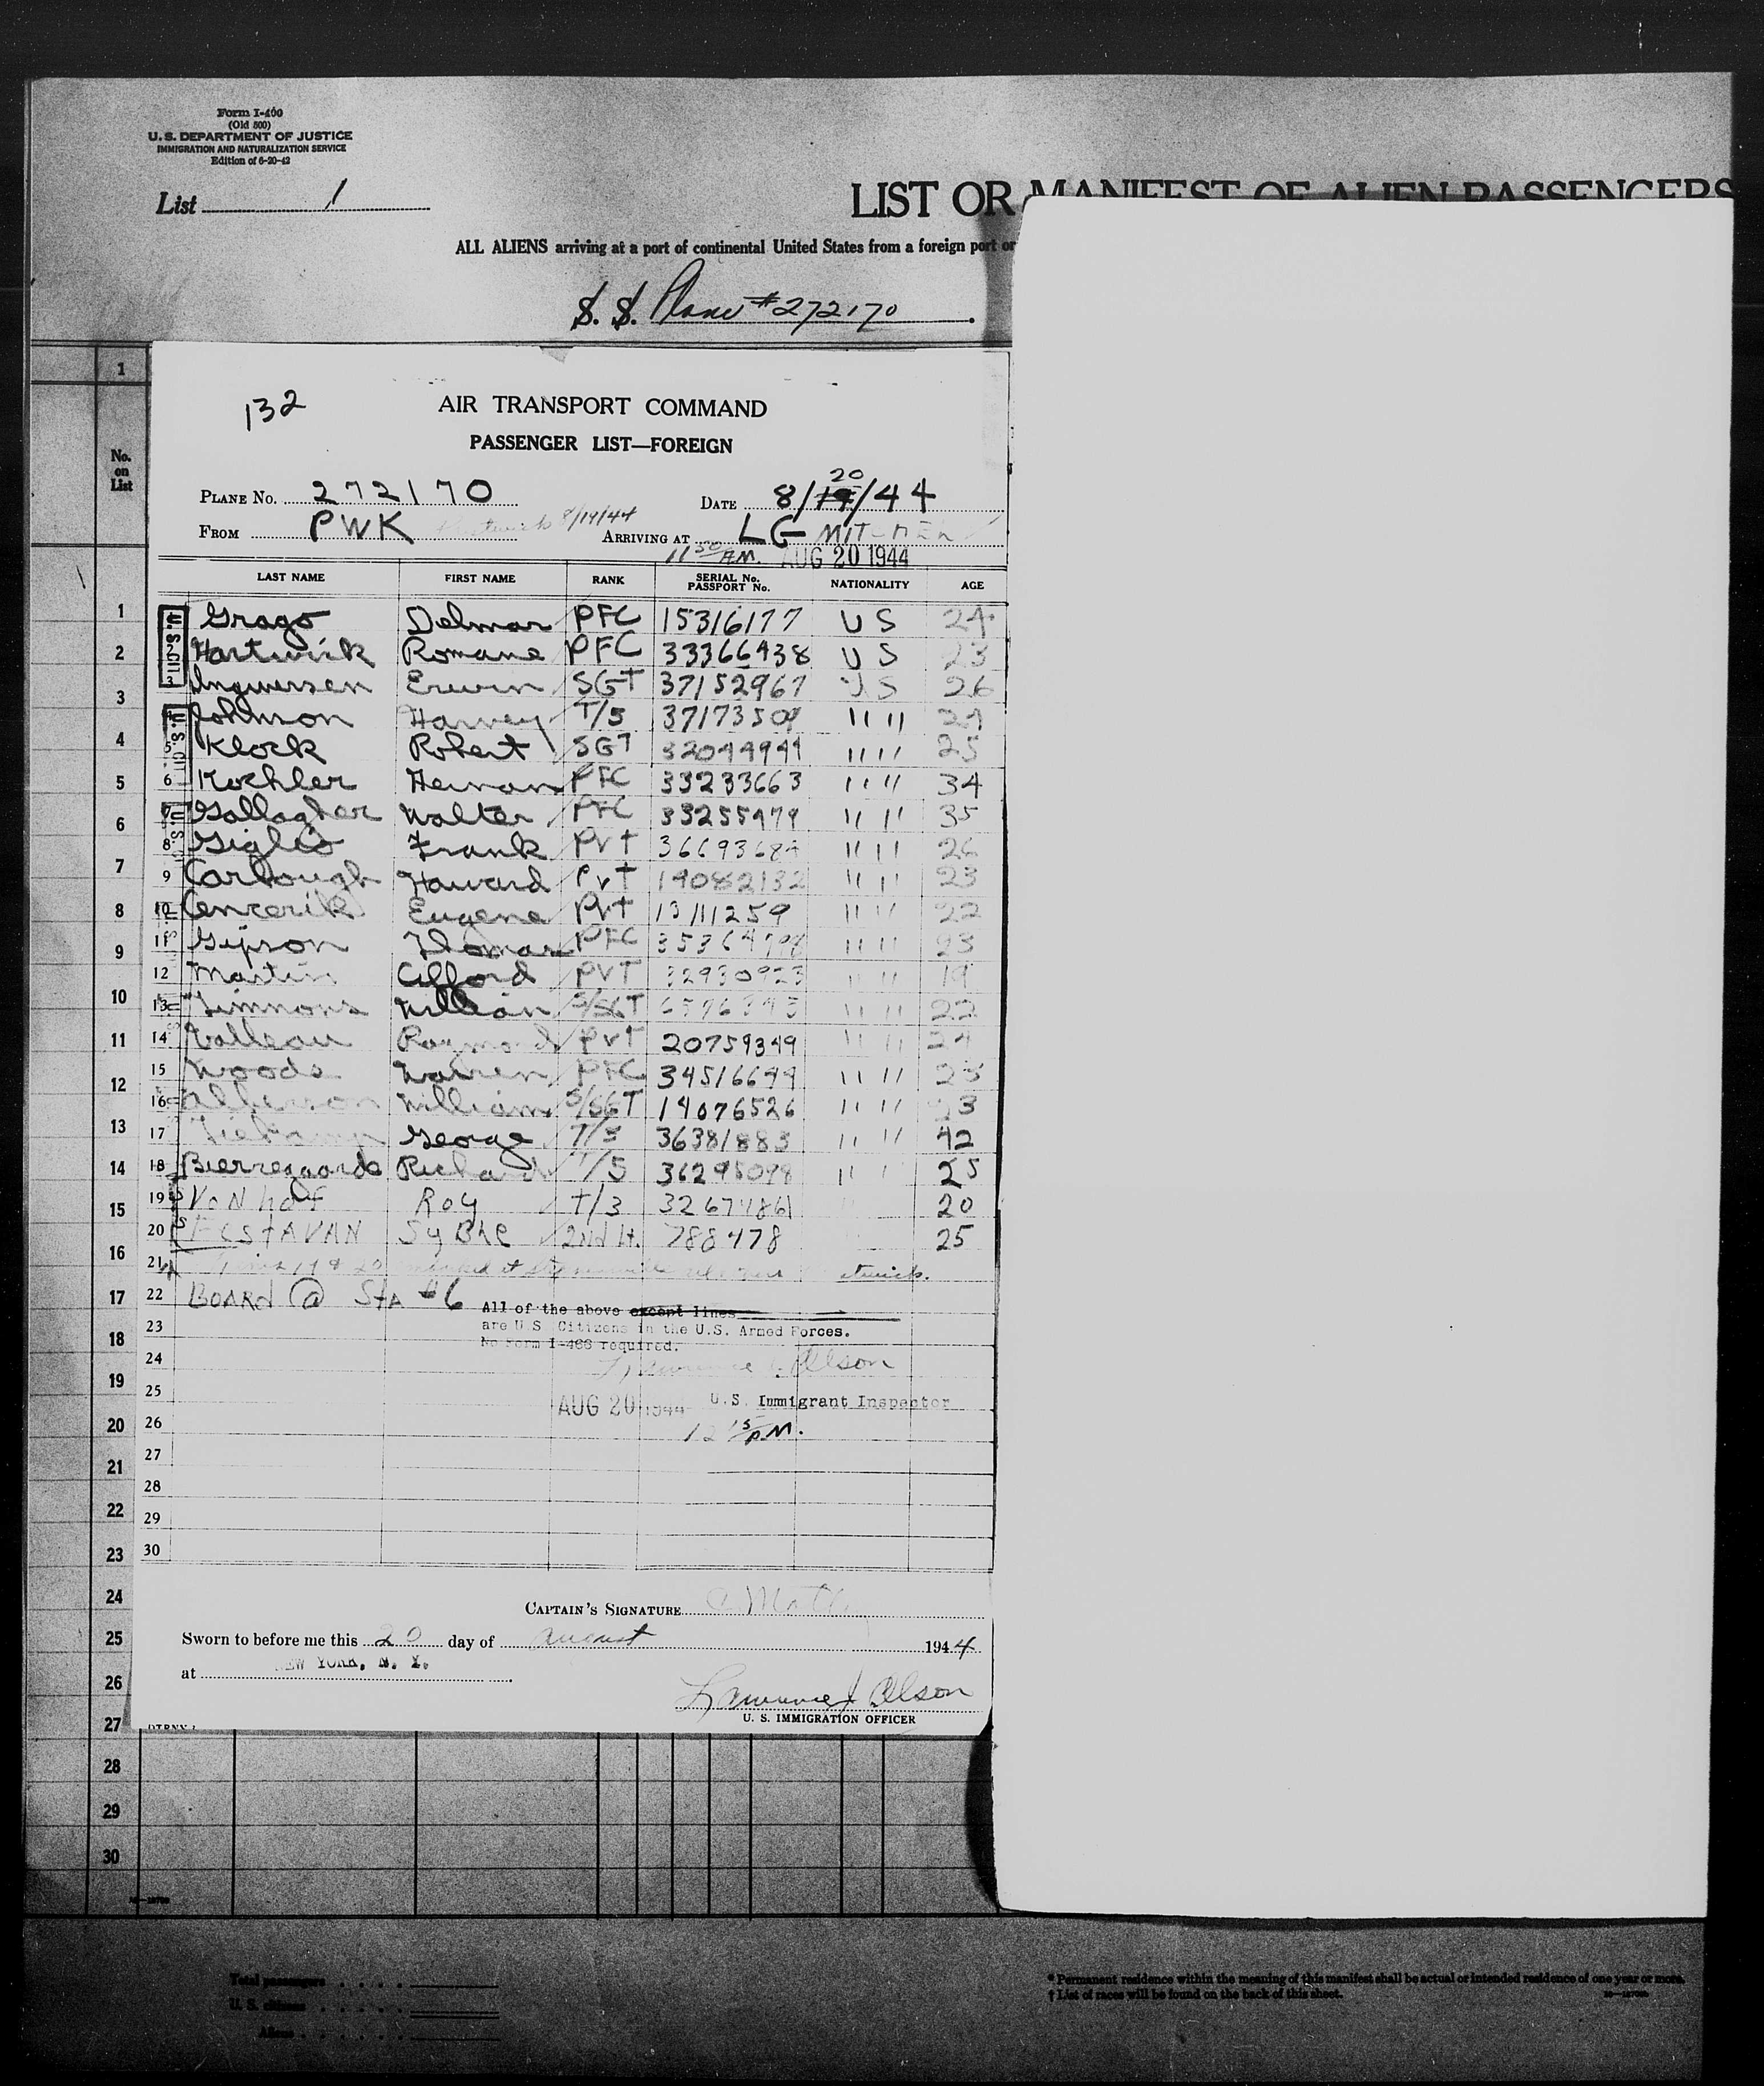 Form I-400
(Old 500)
U. S. DEPARTMENT OF JUSTICE
IMMIGRATION AND NATURALIZATION SERVICE
Edition of 6-20-42
List 1
LIST OR MANIFEST OF ALIEN PASSENGERS
ALL ALIENS arriving at a port of continental United States from a foreign port or
S. S. Plane #272170
1
No. on List
132
AIR TRANSPORT COMMAND
PASSENGER LIST—FOREIGN
PLANE NO. 272170 DATE 8/19/44 20
FROM PWK Prestwick 8/19/44 ARRIVING AT LG
11 50 A.M. AUG 20 1944
LAST NAME FIRST NAME RANK SERIAL No. PASSPORT No. NATIONALITY AGE
1 Grago Delmar PFC 15316177 US 24
2 Hartwick Romane PFC 33366938 US 23
3 Ingwersen Erwin SGT 37152967 US 26
4 Johnson Harvey T/5 " "
5 Klock Robert SGT " " 25
6 Koehler Herman PFC 33233663 " " 34
7 Gallagher Walter PFC 33255979 " " 35
8 Giglio Frank Pvt " " 26
9 Carbough Howard Pvt 19082132 " " 23
10 Eugene Pvt 13111259 " " 22
11 Gipson Thomas PFC " " 23
12 Martin Clifford PVT 32930923 " " 19
13 Timmons William S/SGT " " 22
14 Valleau Raymond Pvt 20759349 " " 24
15 Woods Warren PFC 34516699 " " 23
16 William S/SGT 14076526 " "
17 George T/3 36381883 " " 42
18 Bierregaarde Richard T/5 36295098 " " 25
19 VonHof Roy T/3 20
20 2nd Lt. 788478 25
21
22 BOARD @ Sta #6
All of the above except lines
23 are U.S. Citizens in the U.S. Armed Forces.
No Form I-466 required.
24 Lawrence J Olson
25 AUG 20 1944 U.S. Immigrant Inspector
26 12 15 P.M.
27
28
29
30
CAPTAIN'S SIGNATURE
Sworn to before me this 20 day of August 1944
at NEW YORK, N. Y.
Lawrence J Olson
U. S. IMMIGRATION OFFICER
1
2
3
4
5
6
7
8
9
10
11
12
13
14
15
16
17
18
19
20
21
22
23
24
25
26
27
28
29
30
Total passengers
U. S. citizens
Aliens
* Permanent residence within the meaning of this manifest shall be actual or intended residence of one year or more.
† List of races will be found on the back of this sheet.